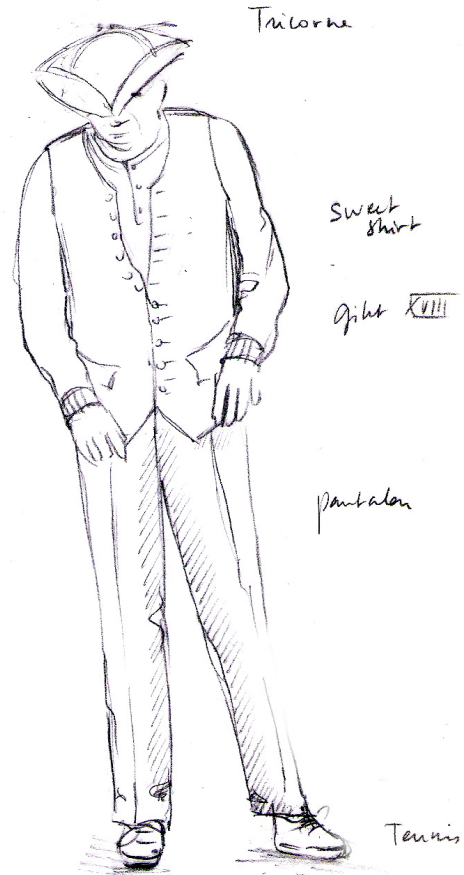 Tricorne
sweet
shirt
gilet XVIII
pantalon
Tennis